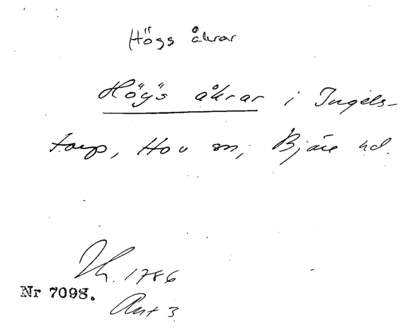 Högs åkrar
Högs åkrar i Ingels-
torp, Hov sn, Bjäre hd.
Lh. 1786
Nr 7098.
Ant 3